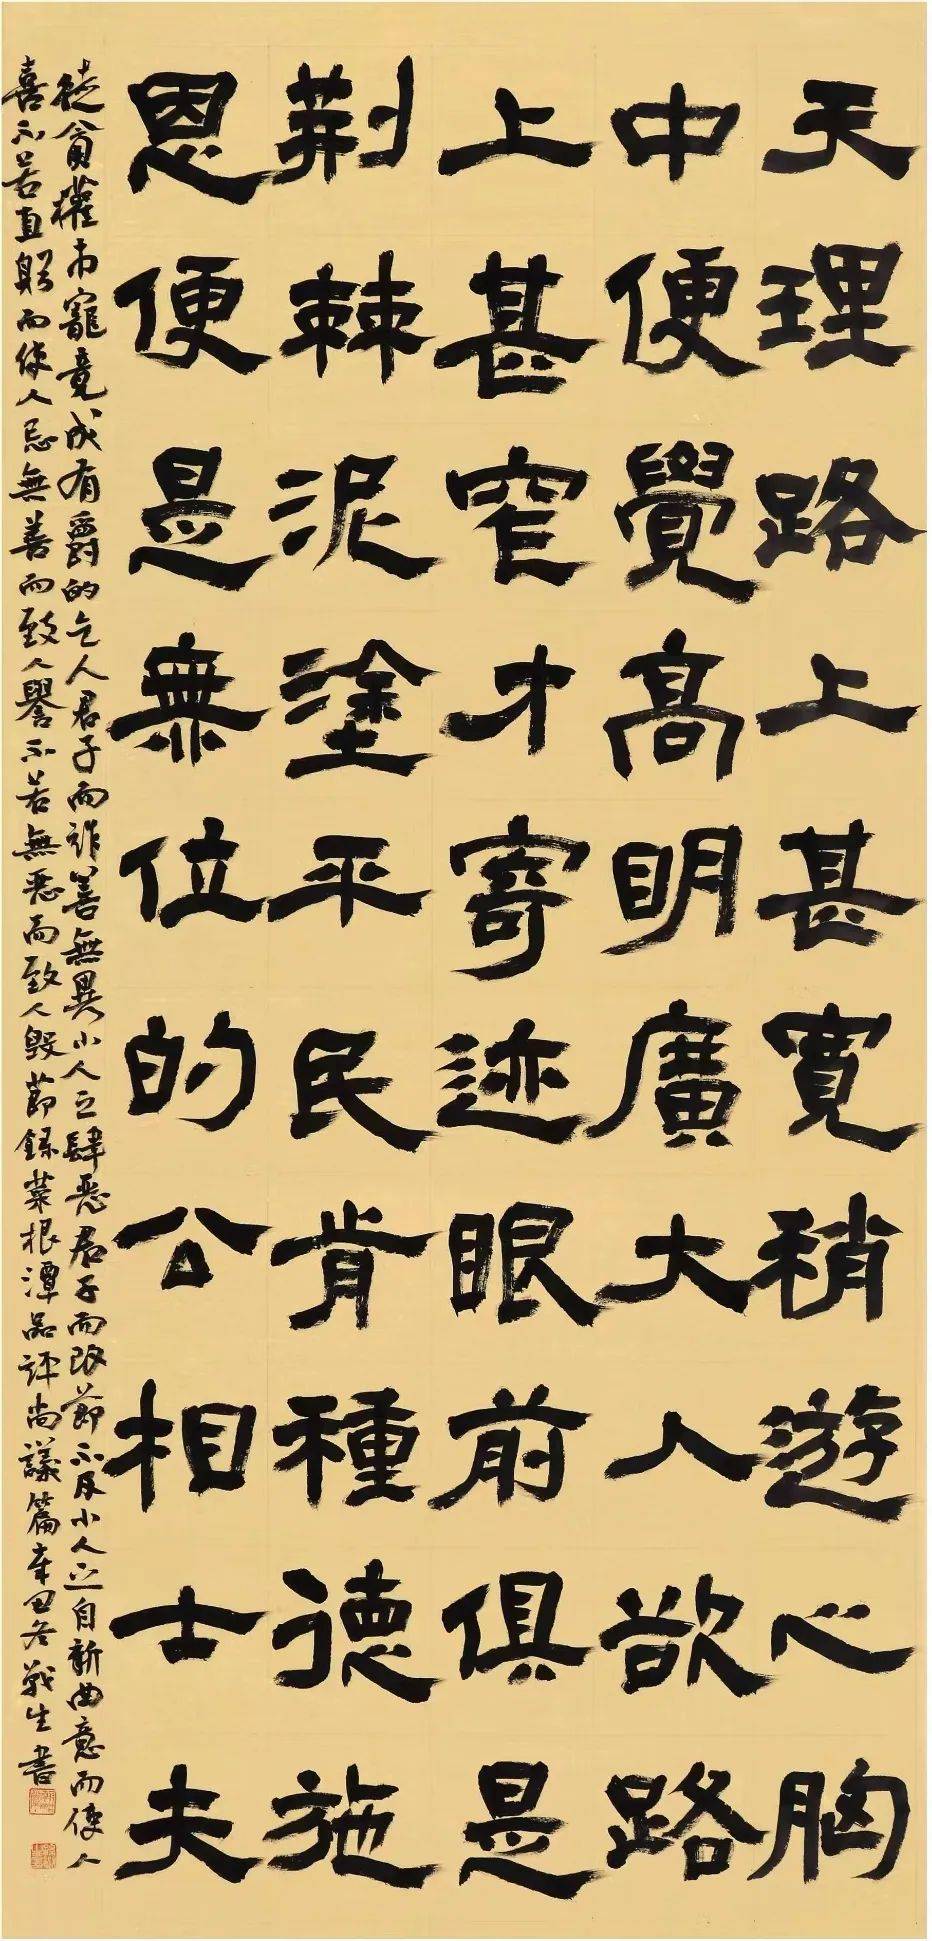 天理路上甚寬稍遊心胸
中便覺高明廣大人欲路
上甚窄才寄迹眼前俱是
荆棘泥塗平民肯種德施
恩便是無位的公相士夫
徒貪權市寵竟成有爵的乞人君子而詐善無異小人之肆惡君子而改節不及小人之自新曲意而使人
喜不若直躬而使人忌無善而致人譽不若無惡而致人毀節錄菜根潭品評尚議篇辛丑冬戰生書